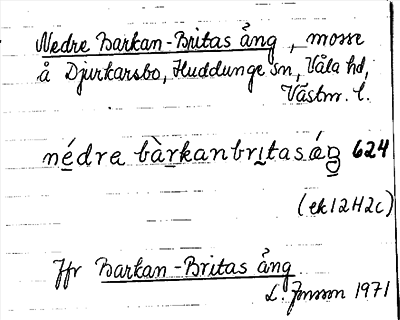 Nedre Barkan-Britas äng, mosse
å Djurkarsbo, Huddunge sn, Våla hd,
Västm. l.
nédre bàrkanbritasáŋ 624
(ek 12H2c)
Jfr Barkan-Britas äng
L. Jonsson 1971